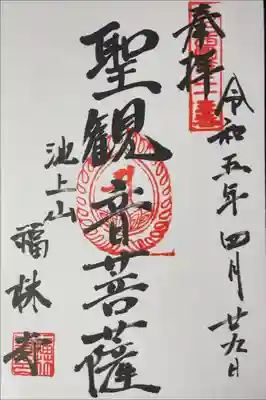 奉拝
令和五年四月廿九日
聖観音菩薩
池上山
福林寺